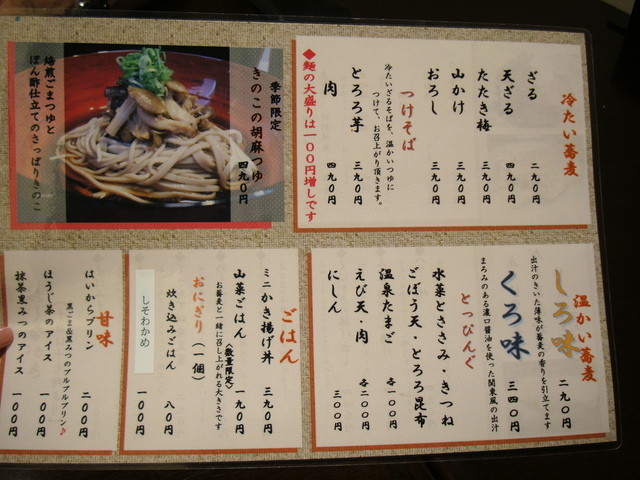 冷たい蕎麦
ざる 二九〇円
天ざる 四九〇円
たたき梅 三九〇円
山かけ 三九〇円
おろし 三九〇円
つけそば
冷たいざるそばを、温かいつゆに
つけて、お召上がり頂きます。
とろろ芋 三九〇円
肉 四九〇円
◆麺の大盛りは一〇〇円増しです
季節限定
きのこの胡麻つゆ
四九〇円
焙煎ごまつゆと
ぽん酢仕立てのさっぱりきのこ
温かい蕎麦
しろ味 二九〇円
出汁のきいた薄味が蕎麦の香りを引立てます
くろ味 三四〇円
まろみのある濃口醤油を使った関東風の出汁
とっぴんぐ
水菜とささみ・きつね
ごぼう天・とろろ昆布
温泉たまご 各一〇〇円
えび天・肉 各二〇〇円
にしん 三〇〇円
ごはん
ミニかき揚げ丼 三九〇円
山菜ごはん〈数量限定〉 一九〇円
お蕎麦と一緒に召し上がれる大きさです
おにぎり(一個)
炊き込みごはん 八〇円
しそわかめ 一〇〇円
甘味
はいからプリン 二〇〇円
黒ごま&黒みつのプルプルプリン♪
ほうじ茶のアイス 一〇〇円
抹茶黒みつのアイス 一〇〇円